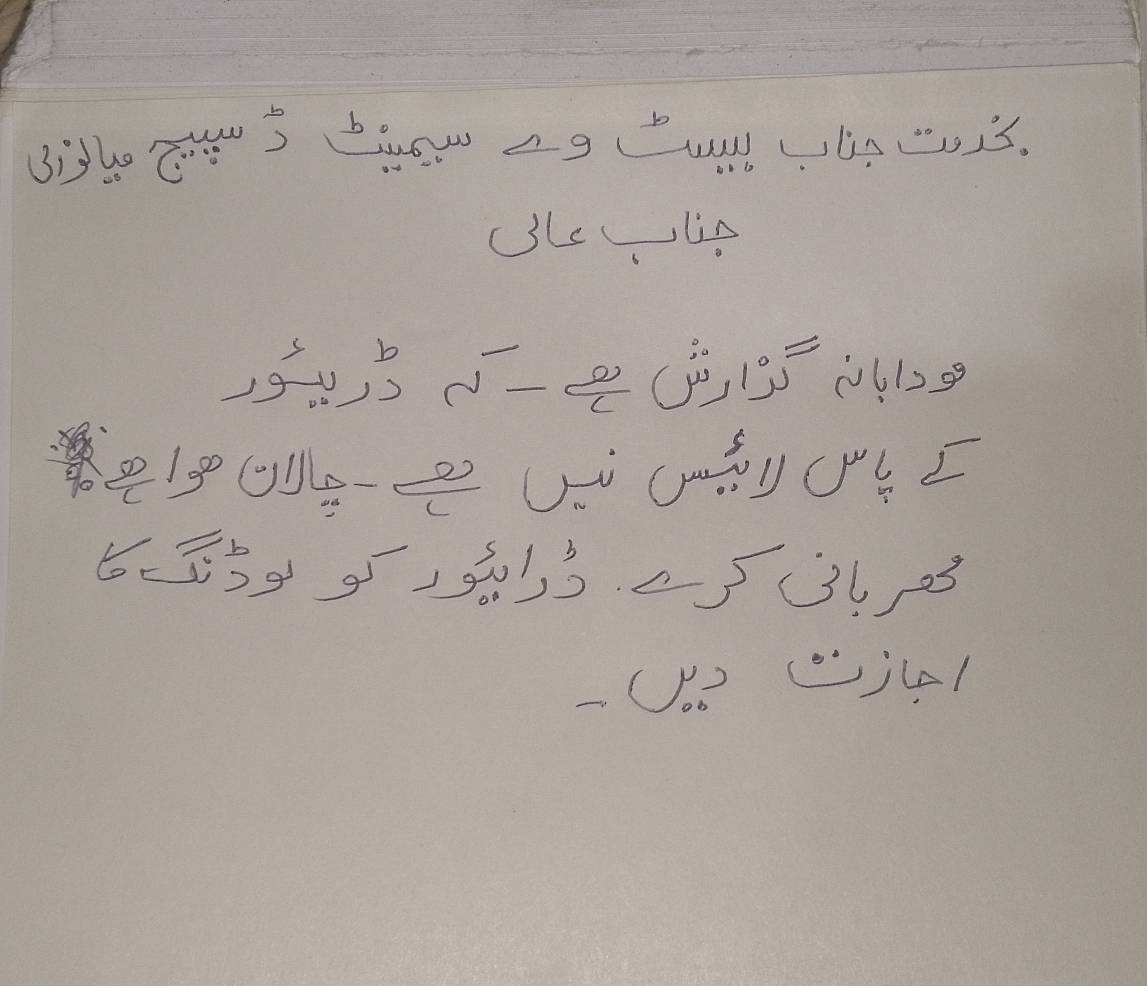 بخدمت جناب بیسٹ وے سیمینٹ ڈسپیچ میانوالی
جناب عالی
مودابانہ گذارش ھے - کہ ڈریئور
کے پاس لائیس نیں ھے - چالان ھوا ھے
مھربانی کرے . ڈرایئور کو لوڈنگ کا
اجازت دیں -